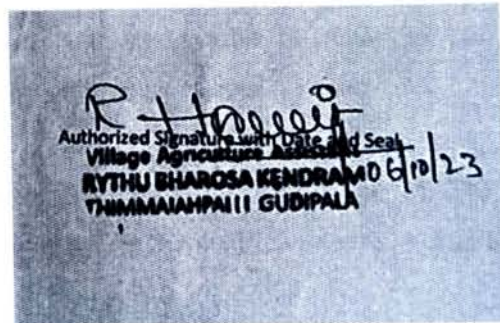 Authorized Signature with Date and Seal
Village Agriculture
RYTHU BHAROSA KENDRAM 06/10/23
THIMMAIAHPALLI GUDIPALA